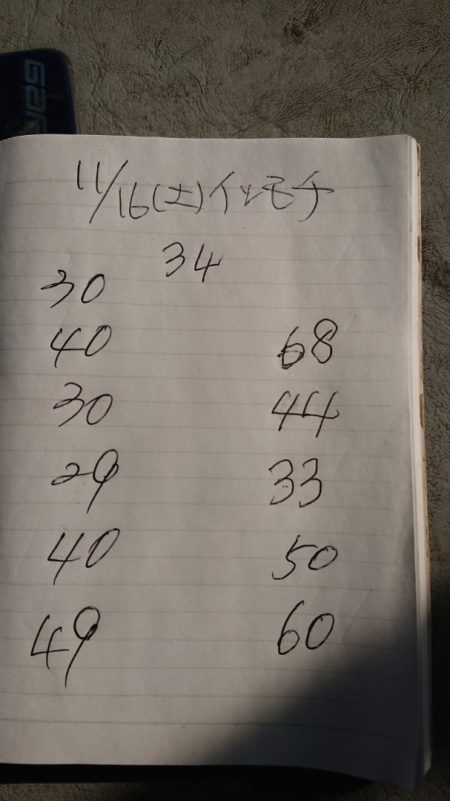 11/16(土)イッモチ
34
30
40 68
30 44
29 33
40 50
49 60